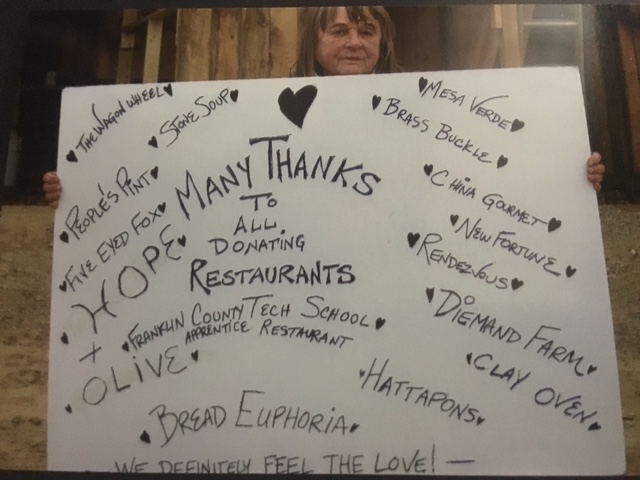 THE WAGON WHEEL
STONE SOUP
PEOPLE'S PINT
FIVE EYED FOX
HOPE
+
OLIVE
MANY THANKS
TO
ALL
DONATING
RESTAURANTS
FRANKLIN COUNTY TECH SCHOOL
APPRENTICE RESTAURANT
MESA VERDE
BRASS BUCKLE
CHINA GOURMET
NEW FORTUNE
RENDEZVOUS
DIEMAND FARM
CLAY OVEN
HATTAPONS
BREAD EUPHORIA
WE DEFINITELY FEEL THE LOVE! —